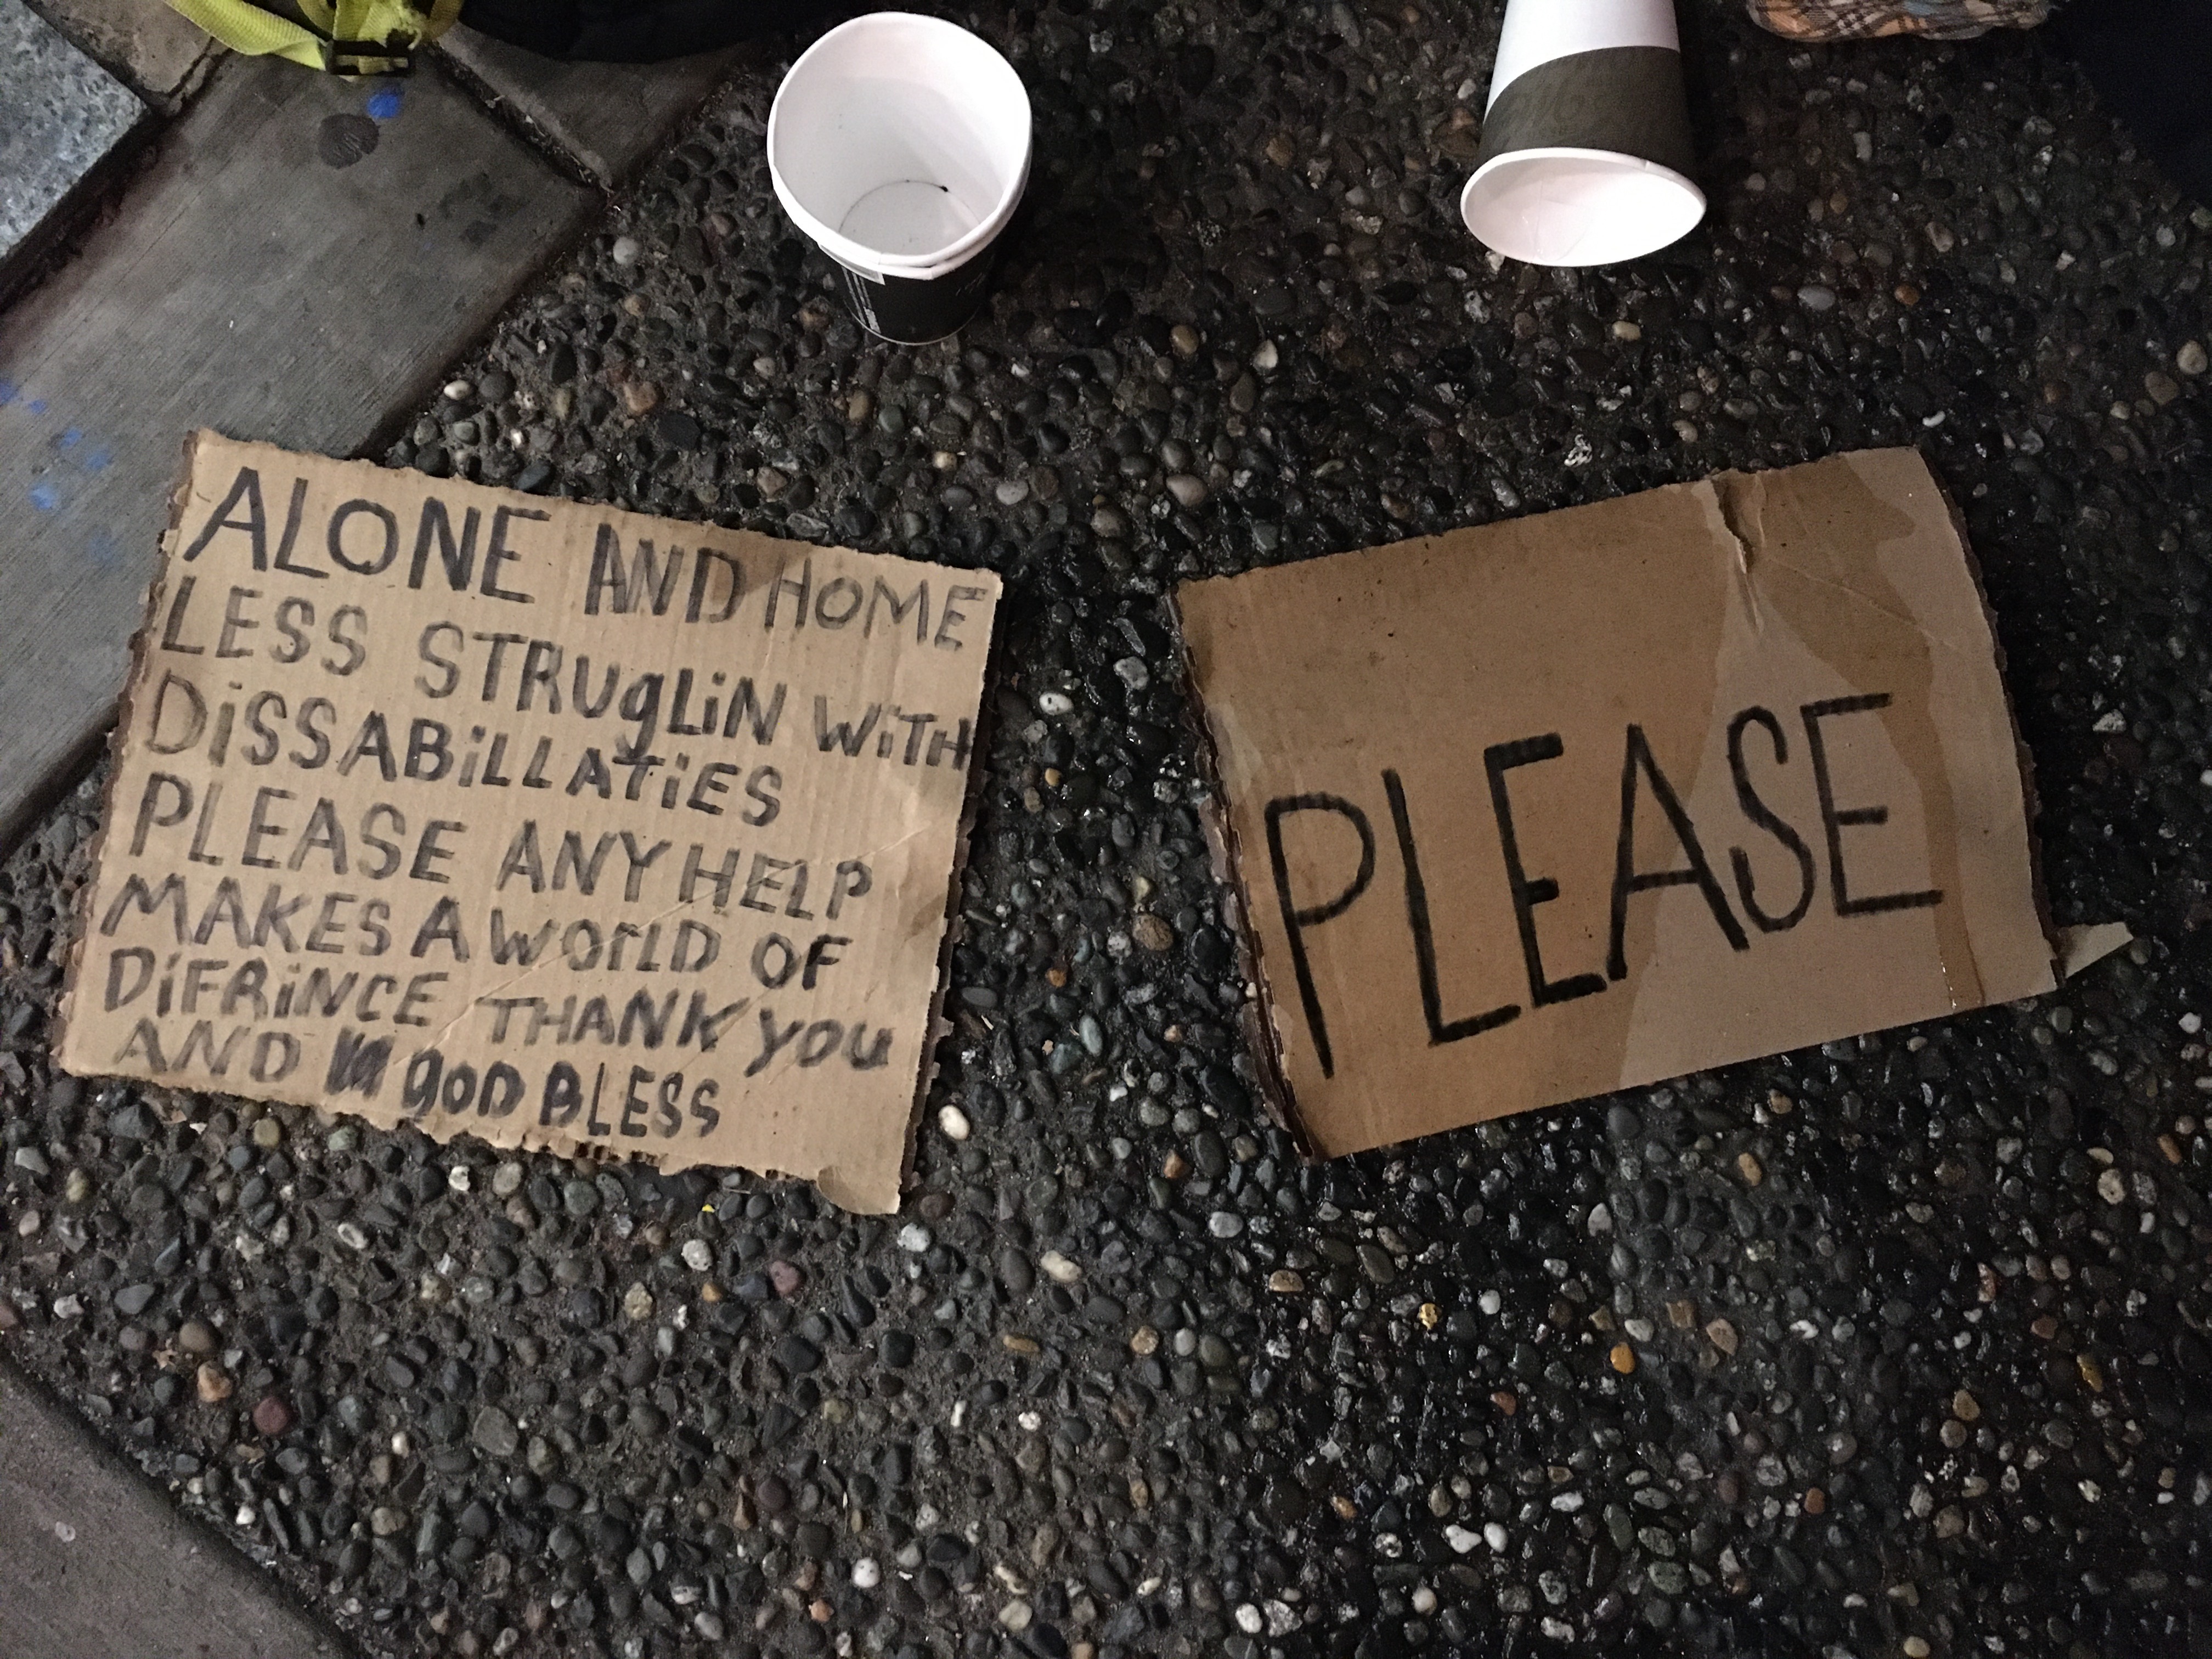 ALONE AND HOME
LESS STRUgLiN WiTH
DiSSABiLLATiES
PLEASE ANY HELP
MAKES A WORLD OF
DiFRiNCE THANK YOU
AND goD BLESS
PLEASE